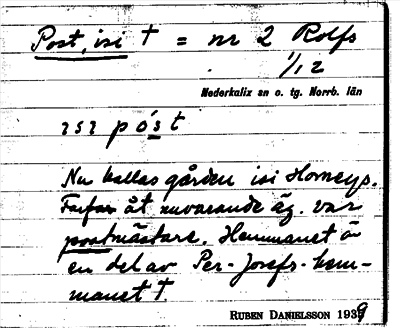 Post, isi † = nr 2 Rolfs
1/12
Nederkalix sn o. tg. Norrb. län
ısı pós t
Nu kallas gården isi Horneys.
Farfar åt nuvarande äg. var
postmästare. Hemmanet är
en del av Per-Josefs-hem-
manet †.
RUBEN DANIELSSON 1939